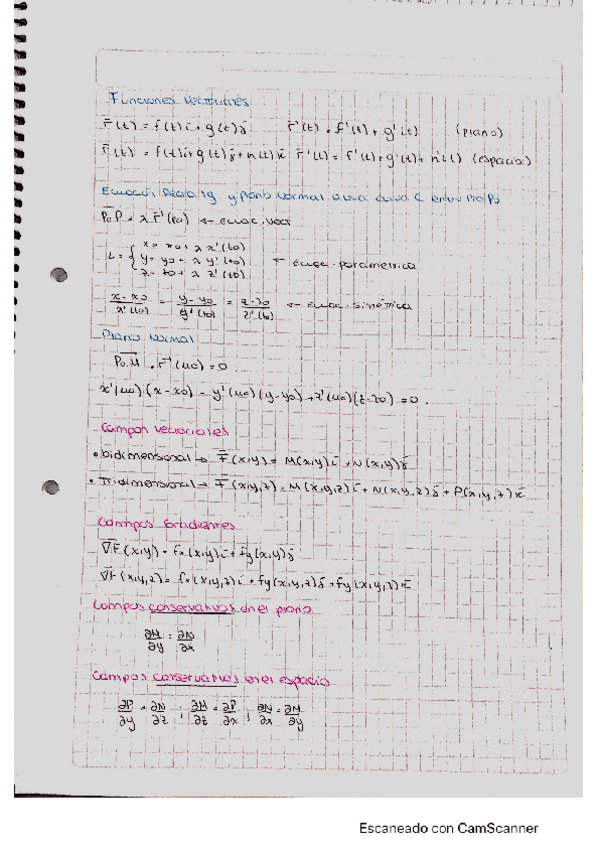 Funciones Vectoriales
r̄(t) = f(t)i + g(t)j    r̄'(t) = f'(t) + g'(t)    (plano)
r̄(t) = f(t)i + g(t)j + h(t)k    r̄'(t) = f'(t) + g'(t) + h'(t)    (espacio)
Ecuación Recta tg y plano normal a una curva C en un pto P0
P0P = λ r̄'(t0) ← Ecuac. Vect
L = { x = x0 + λ x'(t0)
y = y0 + λ y'(t0) ← Ecuac. parametrica
z = z0 + λ z'(t0)
x-x0/x'(t0) = y-y0/y'(t0) = z-z0/z'(t0) ← Ecuac. simétrica
Plano Normal
P0M . r̄'(u0) = 0
x'(u0).(x-x0) - y'(u0)(y-y0) + z'(u0)(z-z0) = 0.
Campos vectoriales
• bidimensional → F̄(x,y) = M(x,y)i + N(x,y)j
• Tridimensional → F̄(x,y,z) = M(x,y,z)i + N(x,y,z)j + P(x,y,z)k
Campos Gradientes
∇F(x,y) = fx(x,y)i + fy(x,y)j
∇F(x,y,z) = fx(x,y,z)i + fy(x,y,z)j + fy(x,y,z)k
Campos conservativos en el plano
∂M/∂y = ∂N/∂x
Campos conservativos en el espacio
∂P/∂y = ∂N/∂z ; ∂M/∂z = ∂P/∂x ; ∂N/∂x = ∂M/∂y
Escaneado con CamScanner